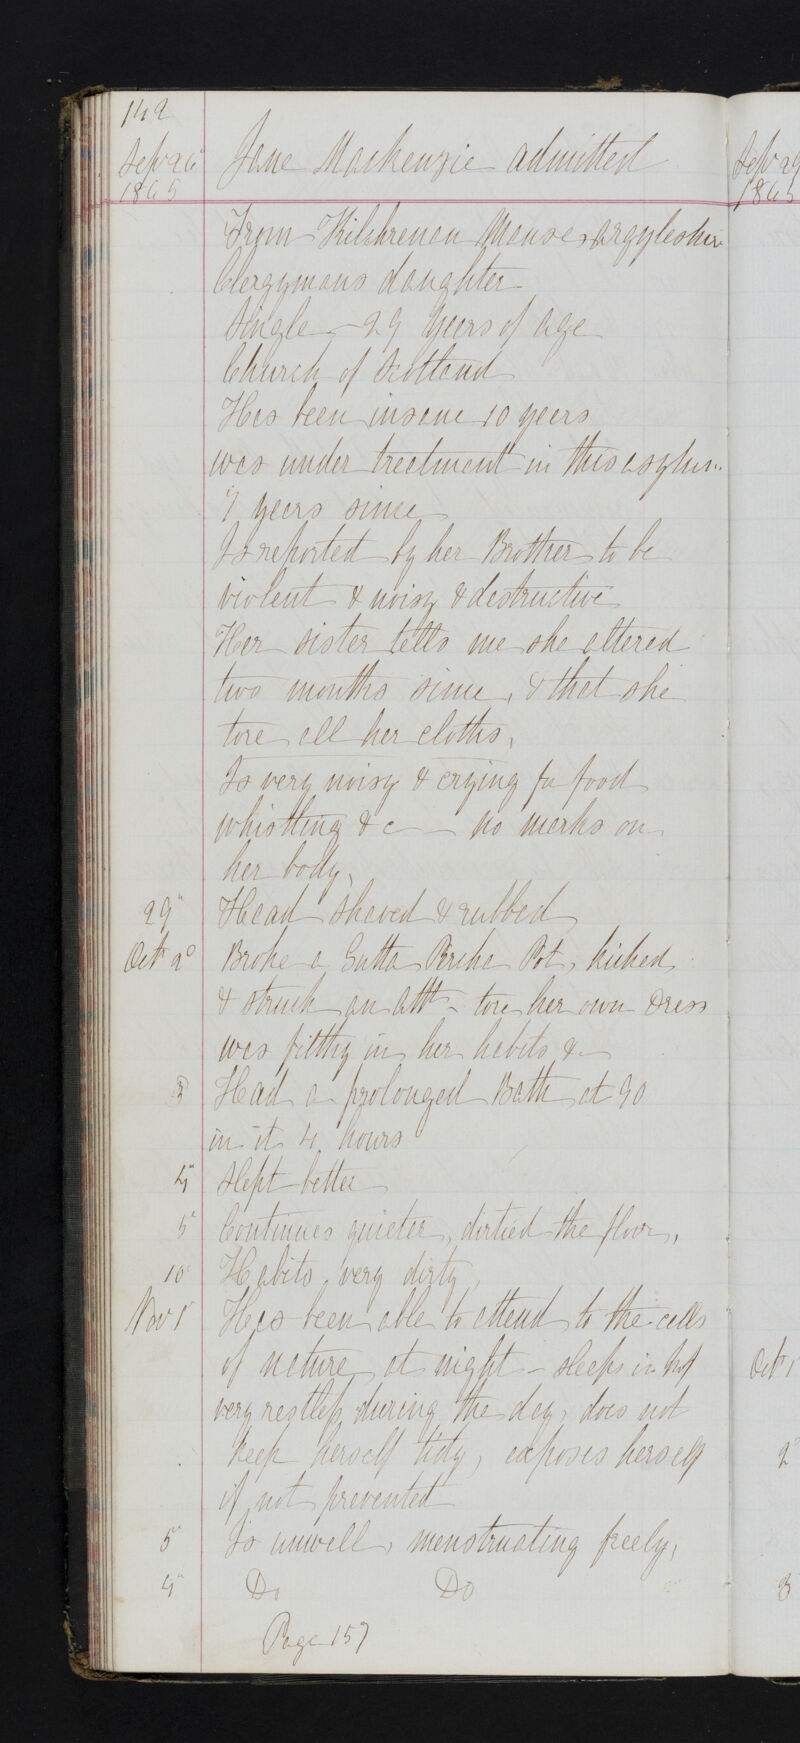 142
Sep 26 Jane Mackenzie admitted
1865
From Kilchrenan Manse, Argyleshire
Clergymans daughter
Single - 29 Years of age
Church of Scotland
Has been insane 10 years
was under treatment in this asylum
7 years since
Is reported by her Brother to be
violent & noisy & destructive
Her sister tells me she altered
two months since, & that she
tore all her cloths,
Is very noisy & crying for food
whistling &c - no marks on
her body,
29" Head shaved & rubbed
Oct 2d Broke a Gutta Percha Pot, kicked
& struck an attt - tore her own Dress
was filthy in her habits &-
3 Had a prolonged Bath at 90
in it 4 hours
4" Slept better
5" Continues quieter, dirtied the floor,
10" Habits very dirty,
Nov 1" Has been able to attend to the calls
of nature at night - sleeps in
very restless during the day, does not
keep herself tidy, exposes herself
if not prevented
5" Is unwell, menstruating freely,
Do Do
Page 157
Sep 29
1865
Oct 1
2"
3